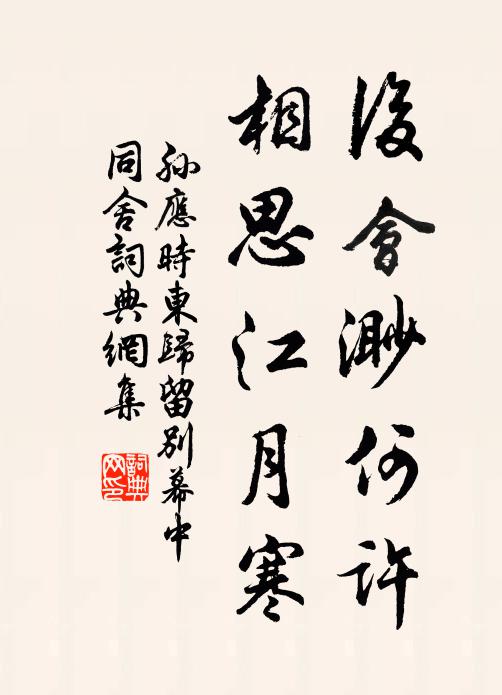 後會渺何許
相思江月寒
孫應時東歸留別幕中
同舍詞典網集
詞典
网印